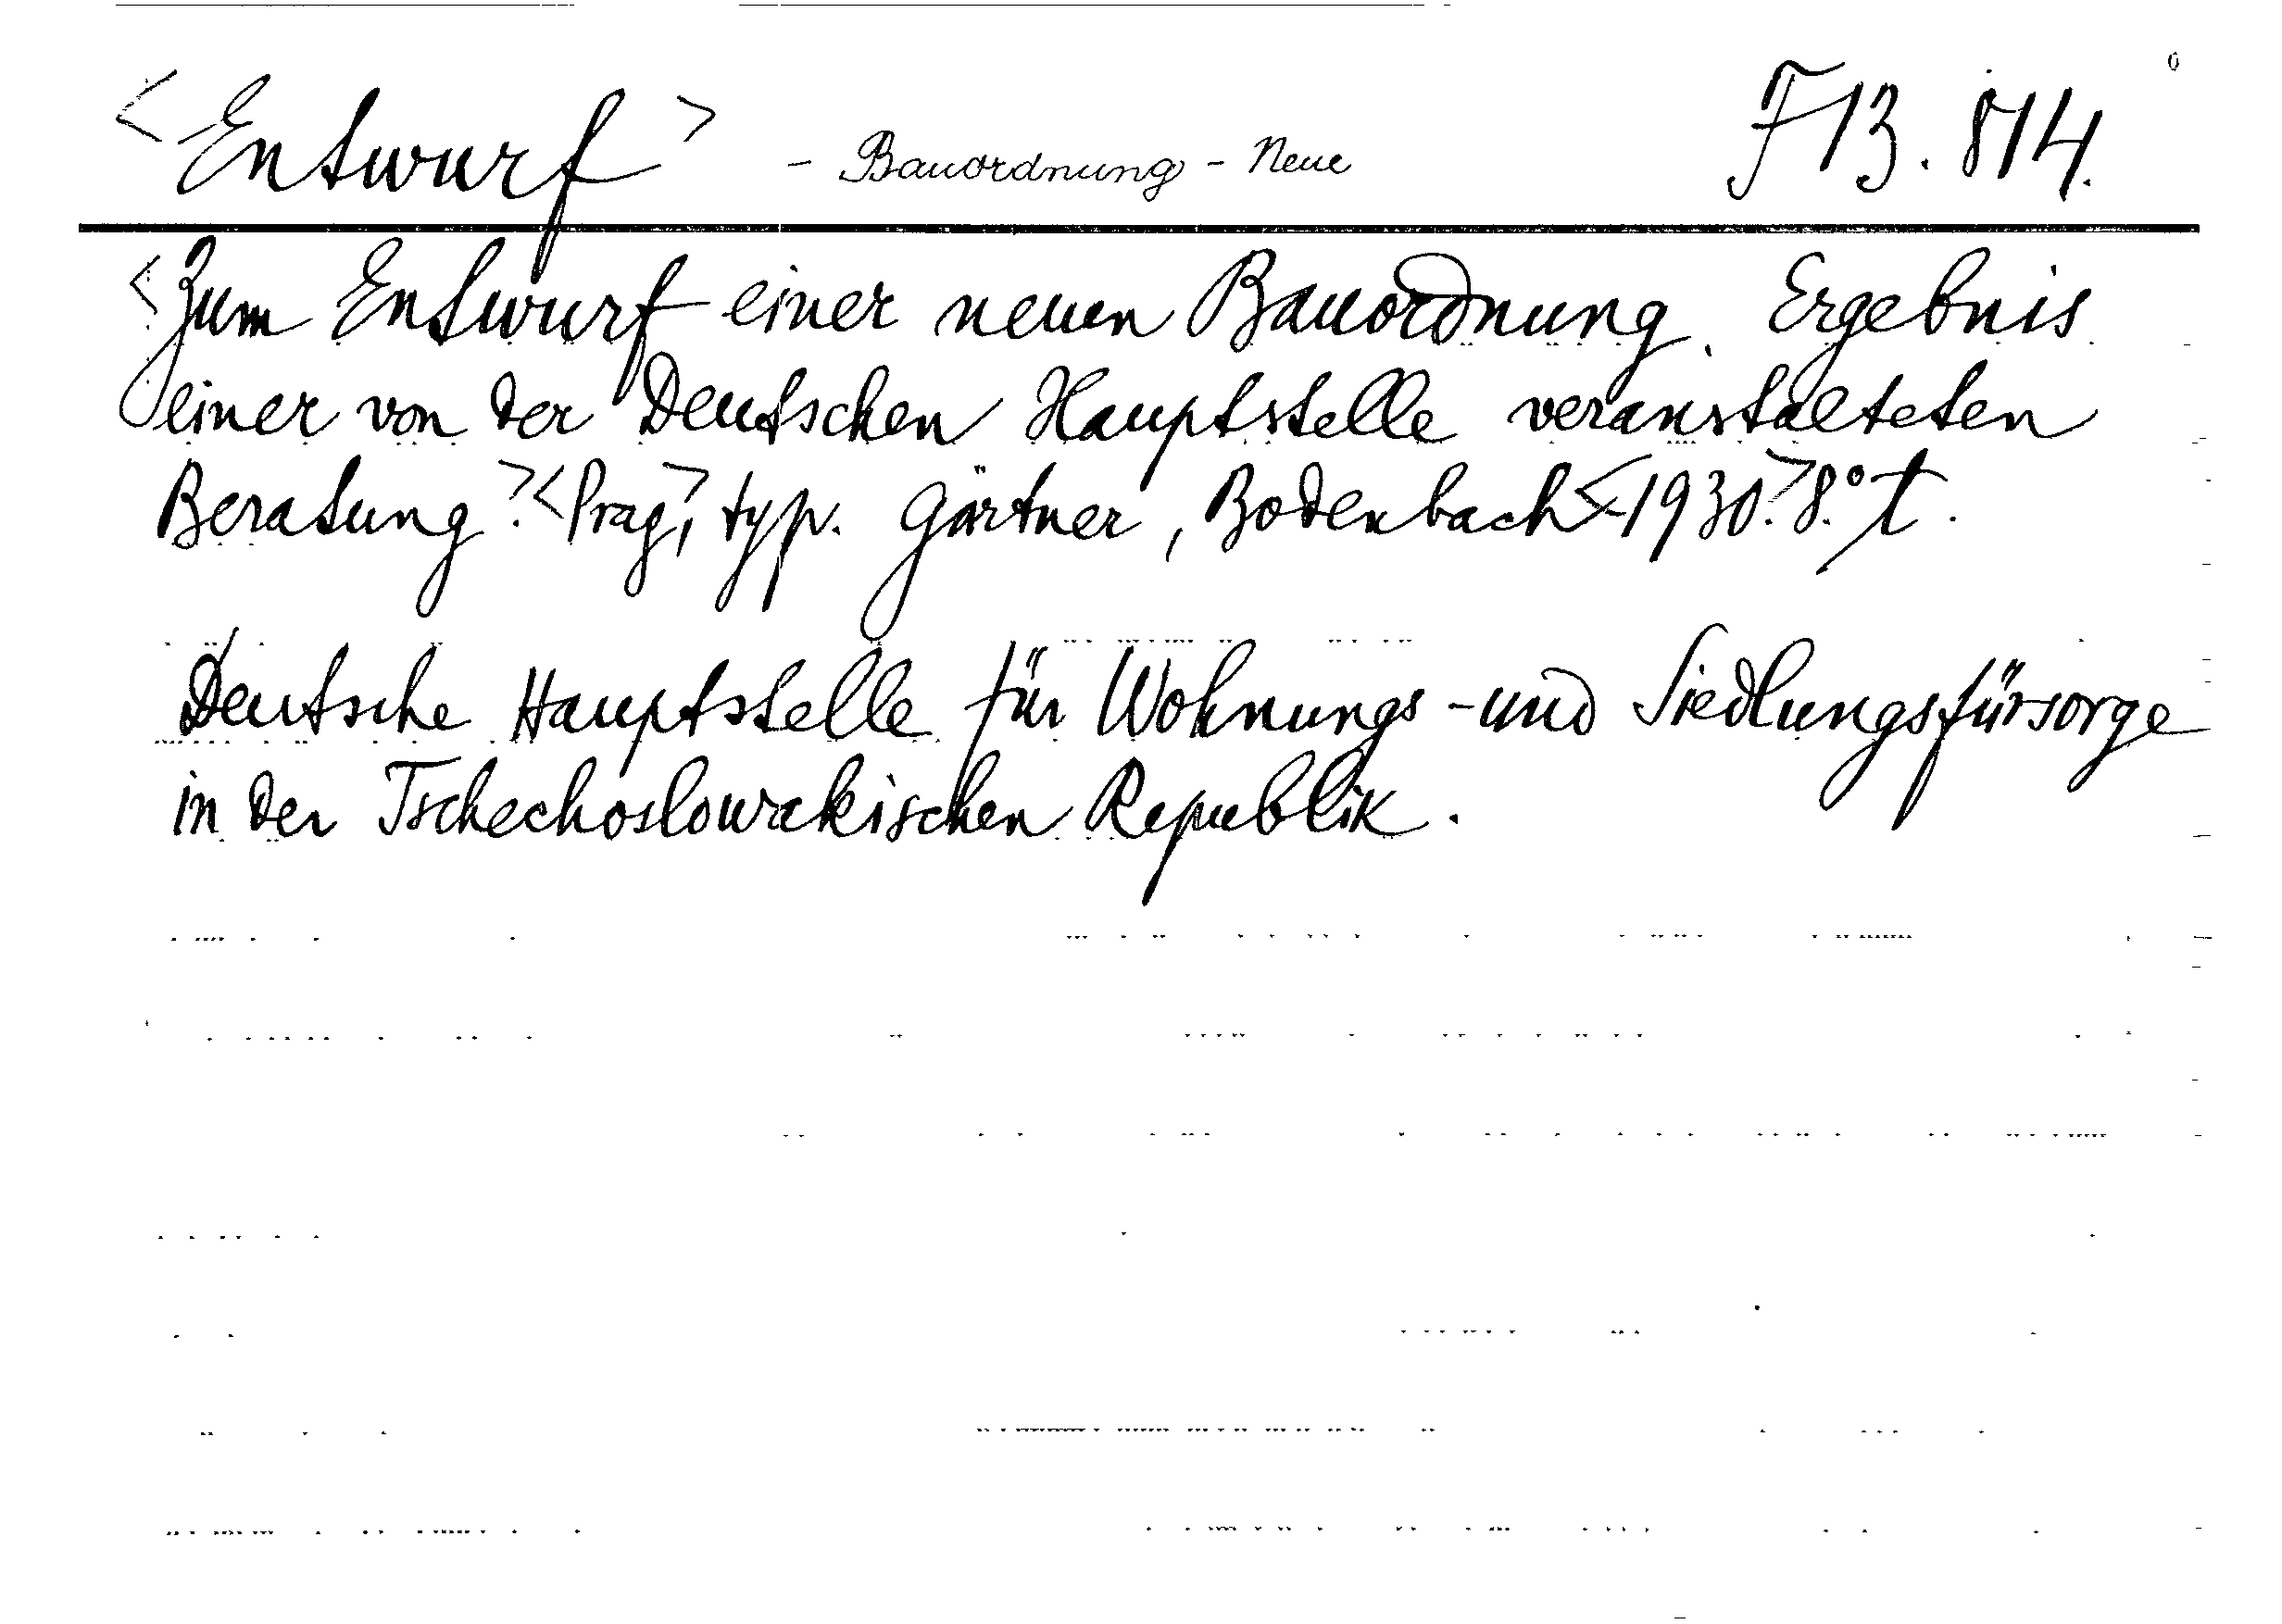 <Entwurf> - Bauordnung - Neue F 13.814.
<Zum Entwurf einer neuen Bauordnung. Ergebnis
einer von der Deutschen Hauptstelle veranstalteten
Beratung.><Prag>, typ. Gärtner, Bodenbach <1930.> 8.° t.
Deutsche Hauptstelle für Wohnungs-und Siedlungsfürsorge
in der Tschechoslowakischen Republik.